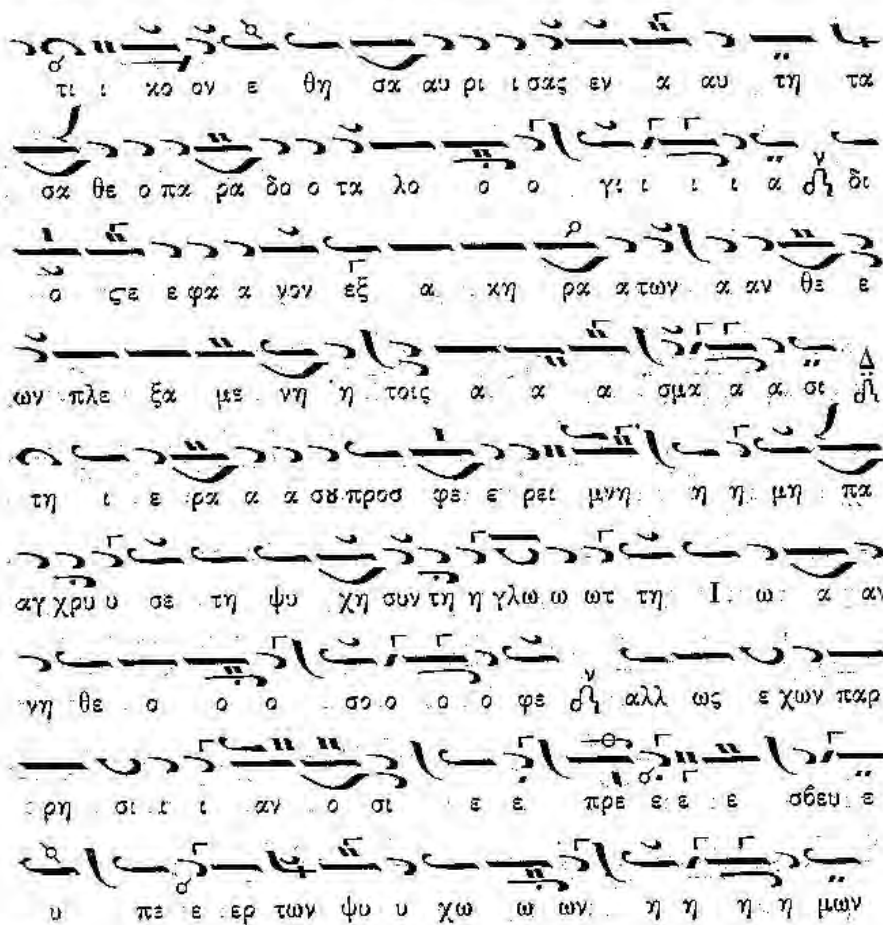 τι ι κο ον ε θη σα αυ ρι ι σας εν α αυ τη τα
σα θε ο πα ρα δο ο τα λο ο ο γι ι ι ι α δι
ο ϛε ε φα α νον εξ α κη ρα α των α αν θε ε
ων πλε ξα με νη η τοις α α α σμα α α σι Δ
τη ι ε ρα α α σȣ προσ φε ε ρει μνη η η μη πα
αγ χρυ υ σε τη ψυ χη συν τη η γλω ω ωτ τη Ι ω α αν
νη θε ο ο ο σο ο ο ο φε αλλ ως ε χων παρ
ρη σι ι ι αν ο σι ε ε πρε ε ε ε σβευ ε
υ πε ε ερ των ψυ υ χω ω ων η η η η μων